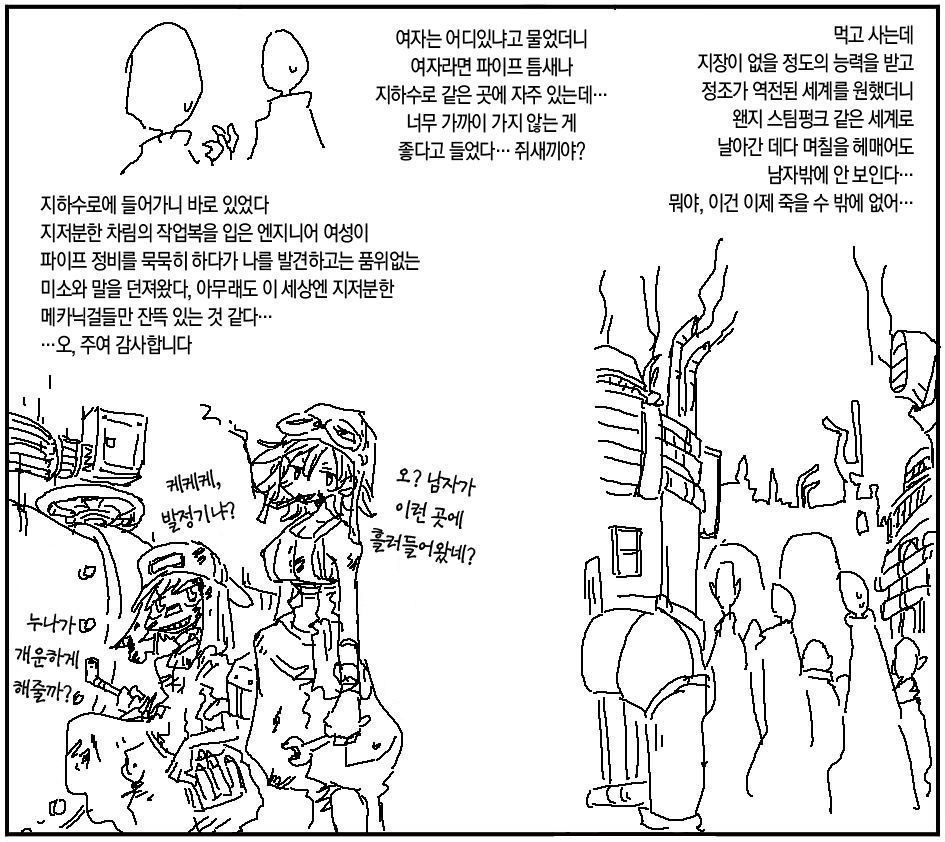 먹고 사는데
지장이 없을 정도의 능력을 받고
정조가 역전된 세계를 원했더니
왠지 스팀펑크 같은 세계로
날아간 데다 며칠을 헤매어도
남자밖에 안 보인다…
뭐야, 이건 이제 죽을 수 밖에 없어…
여자는 어디있냐고 물었더니
여자라면 파이프 틈새나
지하수로 같은 곳에 자주 있는데…
너무 가까이 가지 않는 게
좋다고 들었다… 쥐새끼야?
지하수로에 들어가니 바로 있었다
지저분한 차림의 작업복을 입은 엔지니어 여성이
파이프 정비를 묵묵히 하다가 나를 발견하고는 품위없는
미소와 말을 던져왔다, 아무래도 이 세상엔 지저분한
메카닉걸들만 잔뜩 있는 것 같다…
…오, 주여 감사합니다
오? 남자가
이런 곳에
흘러들어왔네?
케케케,
발정기냐?
누나가
개운하게
해줄까?